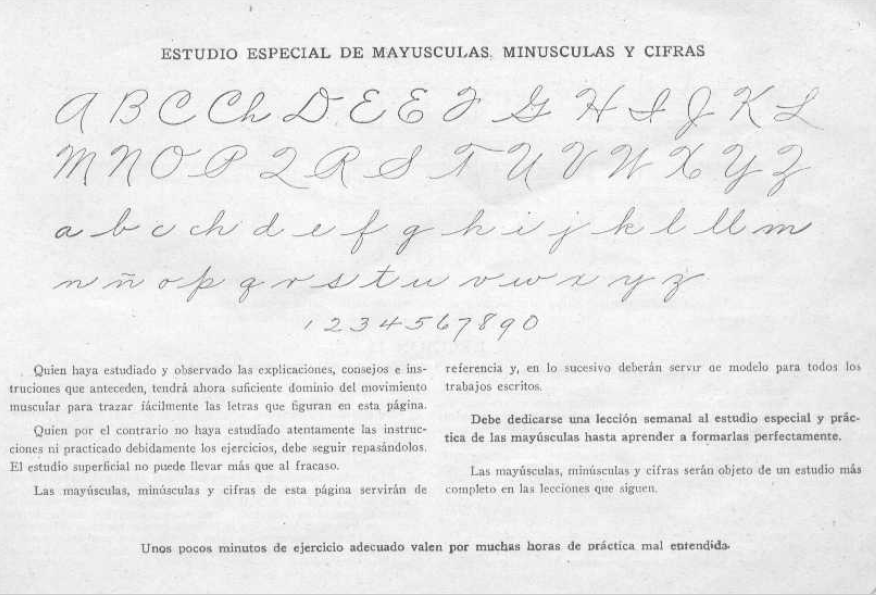 ESTUDIO ESPECIAL DE MAYUSCULAS, MINUSCULAS Y CIFRAS
A B C Ch D E E F G H I J K L
M N O P Q R S T U V W X Y Z
a b c ch d e f g h i j k l ll m
n ñ o p q r s t u v w x y z
1 2 3 4 5 6 7 8 9 0
Quien haya estudiado y observado las explicaciones, consejos e ins-
truciones que anteceden, tendrá ahora suficiente dominio del movimiento
muscular para trazar fácilmente las letras que figuran en esta página.
Quien por el contrario no haya estudiado atentamente las instruc-
ciones ni practicado debidamente los ejercicios, debe seguir repasándolos.
El estudio superficial no puede llevar más que al fracaso.
Las mayúsculas, minúsculas y cifras de esta página servirán de
referencia y, en lo sucesivo deberán servir de modelo para todos los
trabajos escritos.
Debe dedicarse una lección semanal al estudio especial y prác-
tica de las mayúsculas hasta aprender a formarlas perfectamente.
Las mayúsculas, minúsculas y cifras serán objeto de un estudio más
completo en las lecciones que siguen.
Unos pocos minutos de ejercicio adecuado valen por muchas horas de práctica mal entendida.